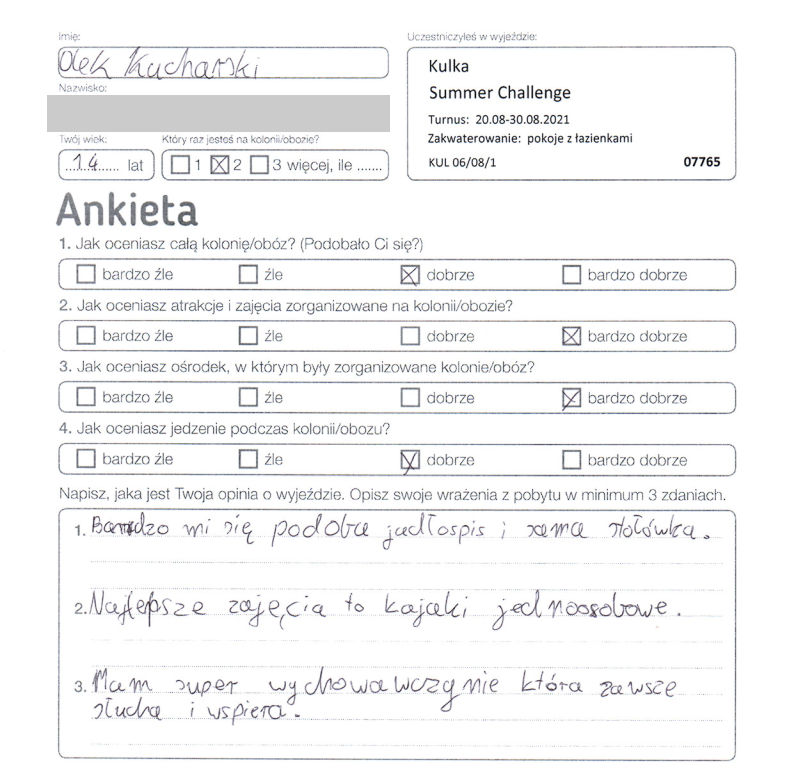 Imię:
Olek Kucharski
Nazwisko:
Twój wiek:
Który raz jesteś na kolonii/obozie?
14 lat
1 2 3 więcej, ile .......
Uczestniczyłeś w wyjeździe:
Kulka
Summer Challenge
Turnus: 20.08-30.08.2021
Zakwaterowanie: pokoje z łazienkami
KUL 06/08/1 07765
Ankieta
1. Jak oceniasz całą kolonię/obóz? (Podobało Ci się?)
bardzo źle źle dobrze bardzo dobrze
2. Jak oceniasz atrakcje i zajęcia zorganizowane na kolonii/obozie?
bardzo źle źle dobrze bardzo dobrze
3. Jak oceniasz ośrodek, w którym były zorganizowane kolonie/obóz?
bardzo źle źle dobrze bardzo dobrze
4. Jak oceniasz jedzenie podczas kolonii/obozu?
bardzo źle źle dobrze bardzo dobrze
Napisz, jaka jest Twoja opinia o wyjeździe. Opisz swoje wrażenia z pobytu w minimum 3 zdaniach.
1. Bardzo mi się podoba jadłospis i sama stołówka.
2. Najlepsze zajęcia to kajaki jednoosobowe.
3. Mam super wychowawczynie która zawsze
słucha i wspiera.